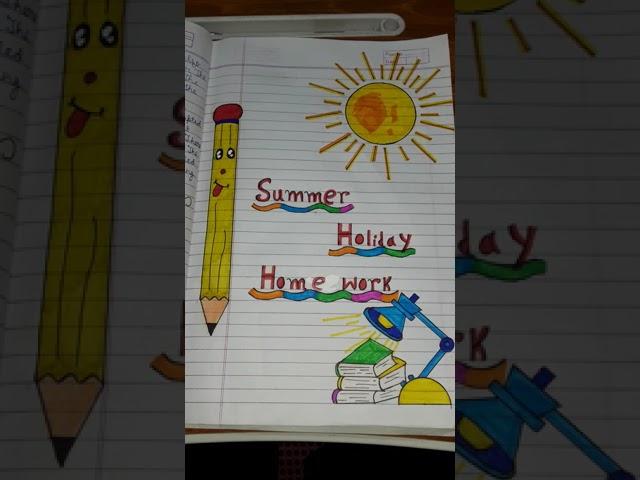 Summer
Holiday
Home work